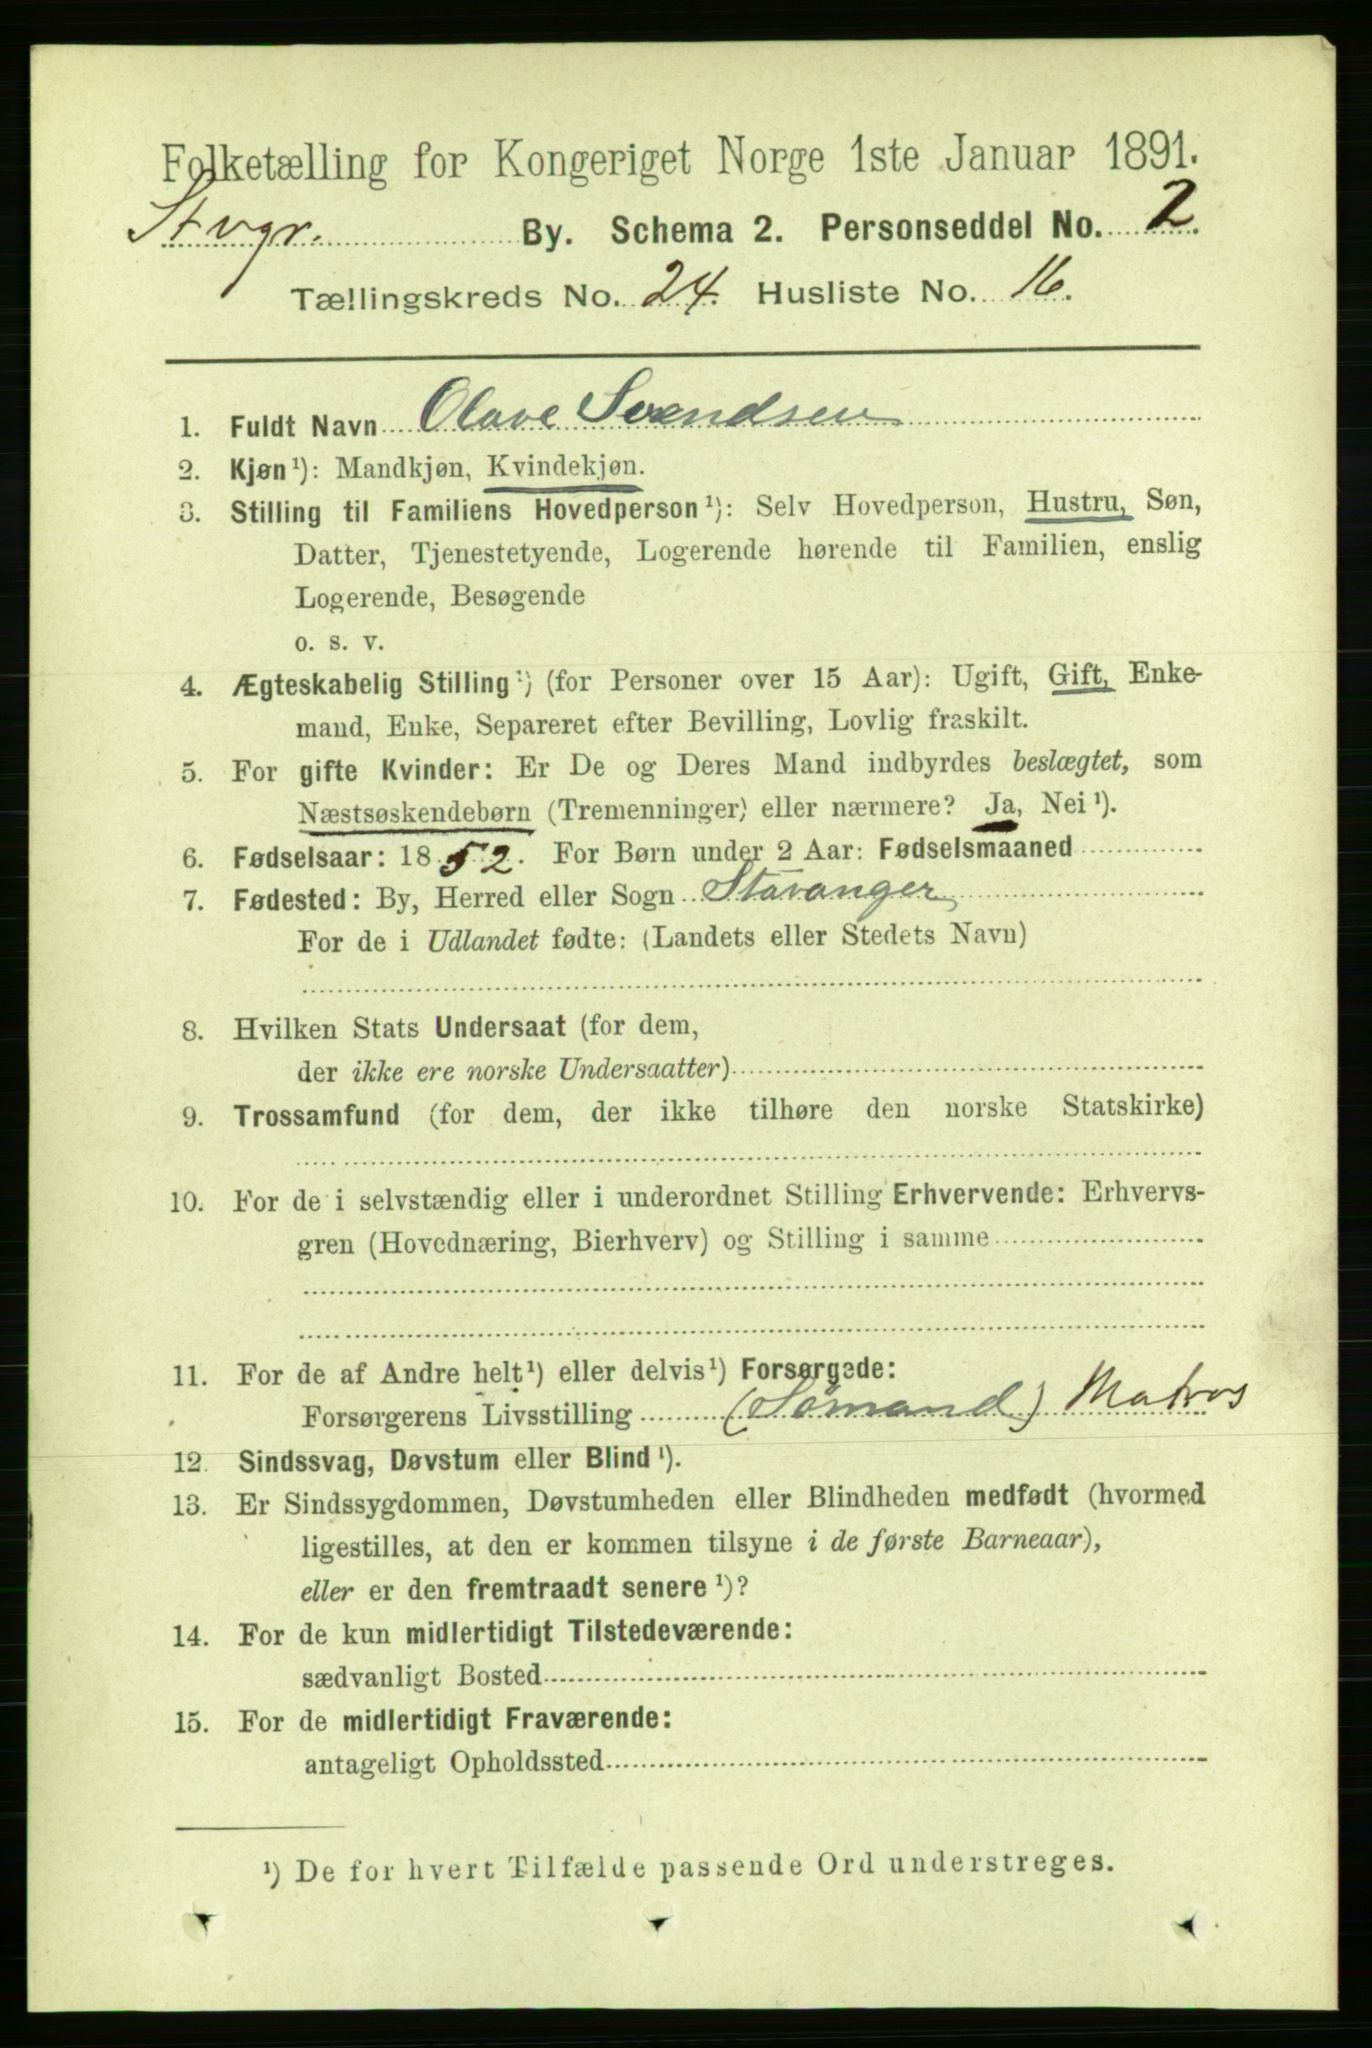 Folketælling for Kongeriget Norge 1ste Januar 1891.
Stvgr. By. Schema 2. Personseddel No. 2.
Tællingskreds No. 24. Husliste No. 16.
1. Fuldt Navn Olave Svendsen
2. Kjøn¹): Mandkjøn, Kvindekjøn.
3. Stilling til Familiens Hovedperson¹): Selv Hovedperson, Hustru, Søn,
Datter, Tjenestetyende, Logerende hørende til Familien, enslig
Logerende, Besøgende
o. s. v.
4. Ægteskabelig Stilling¹) (for Personer over 15 Aar): Ugift, Gift, Enke-
mand, Enke, Separeret efter Bevilling, Lovlig fraskilt.
5. For gifte Kvinder: Er De og Deres Mand indbyrdes beslægtet, som
Næstsøskendebørn (Tremenninger) eller nærmere? Ja, Nei¹).
6. Fødselsaar: 1852. For Børn under 2 Aar: Fødselsmaaned
7. Fødested: By, Herred eller Sogn Stavanger
For de i Udlandet fødte: (Landets eller Stedets Navn)
8. Hvilken Stats Undersaat (for dem,
der ikke ere norske Undersaatter)
9. Trossamfund (for dem, der ikke tilhøre den norske Statskirke)
10. For de i selvstændig eller i underordnet Stilling Erhvervende: Erhvervs-
gren (Hovednæring, Bierhverv) og Stilling i samme
11. For de af Andre helt¹) eller delvis¹) Forsørgede:
Forsørgerens Livsstilling (Sömand) Matros
12. Sindssvag, Døvstum eller Blind¹).
13. Er Sindssygdommen, Døvstumheden eller Blindheden medfødt (hvormed
ligestilles, at den er kommen tilsyne i de første Barneaar),
eller er den fremtraadt senere¹)?
14. For de kun midlertidigt Tilstedeværende:
sædvanligt Bosted
15. For de midlertidigt Fraværende:
antageligt Opholdssted
¹) De for hvert Tilfælde passende Ord understreges.